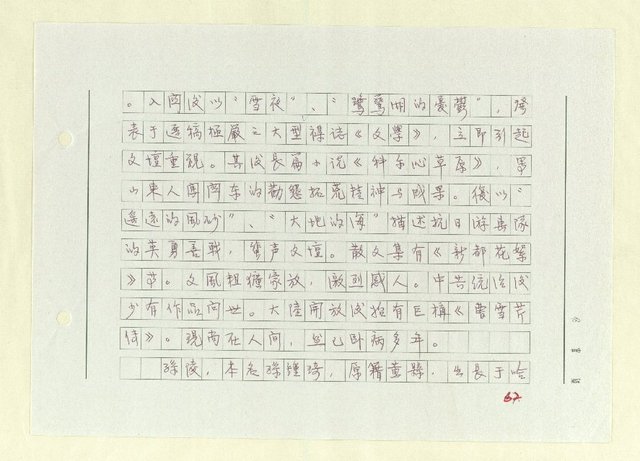 。入関後以“雪夜”、“鷺鷥湖的憂鬱”,發
表于选稿極嚴之大型雜誌《文學》,立即引起
文壇重視。其後長篇小説《科尔沁草原》,写
山東人闖関东的勤懇拓荒精神与成果。後以“
遥遠的風砂”、“大地的海”描述抗日游击隊
的英勇善戰,蜚声文壇。散文集有《新都花絮
》等。文風粗獷豪放,激烈感人。中共统治後
少有作品问世。大陸開放後始有巨構《曹雪芹
傳》。現尚在人间,然已卧病多年。
孫陵,本名孫鍾琦,原籍黄縣,生長于哈
67